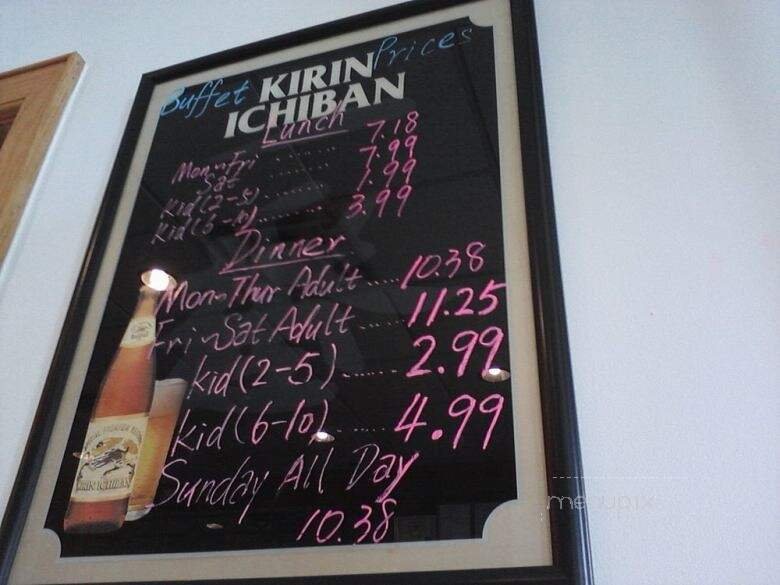 Buffet Prices
KIRIN
ICHIBAN
Lunch
Mon~Fri ...... 7.18
Sat ....... 7.99
kid(2-5) ....... 1.99
kid(6-10) ....... 3.99
Dinner
Mon~Thur Adult ..... 10.38
Fri~Sat Adult ..... 11.25
kid(2-5) ...... 2.99
kid(6-10) ..... 4.99
Sunday All Day
10.38
KIRIN ICHIBAN
menupix